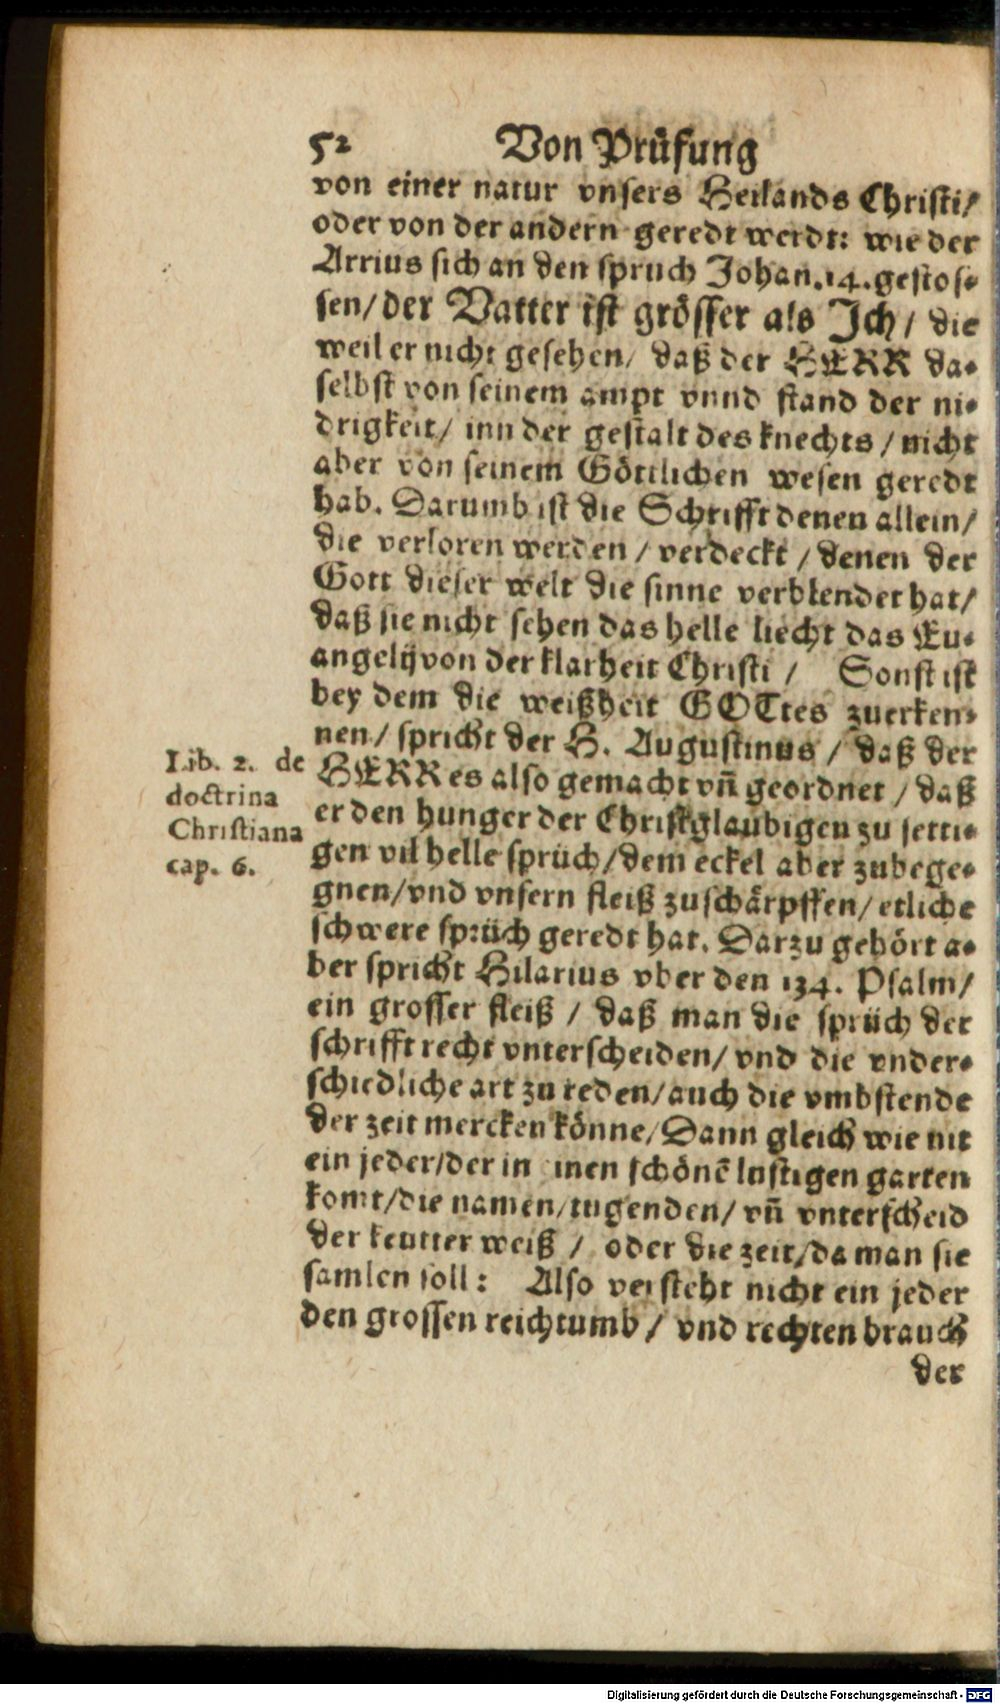 52 Von Prüfung
von einer natur vnsers Heilands Christi/
oder von der andern geredt werdt: wie der
Arrius sich an den spruch Johan.14.gestos-
sen/der Vatter ist grösser als Jch/ die
weil er nicht gesehen/ daß der HERR da-
selbst von seinem ampt vnnd stand der ni-
drigkeit/ inn der gestalt des knechts/nicht
aber von seinem Göttlichen wesen geredt
hab. Darumb ist die Schrifft denen allein/
die verloren werden/verdeckt/denen der
Gott dieser welt die sinne verblendet hat/
daß sie nicht sehen das helle liecht das Eu-
angelij von der klarheit Christi/ Sonst ist
bey dem die weißheit GOTtes zuerken-
nen/ spricht der H. Augustinus/ daß der
Lib. 2. de
doctrina
Christiana
cap. 6.
HERR es also gemacht vñ geordnet/daß
er den hunger der Christglaubigen zu setti-
gen vil helle sprüch/dem eckel aber zubege-
gnen/vnd vnsern fleiß zuschärpffen/etliche
schwere sprüch geredt hat. Darzu gehört a-
ber spricht Hilarius vber den 134. Psalm/
ein grosser fleiß/ daß man die sprüch der
schrifft recht vnterscheiden/vnd die vnder-
schiedliche art zu reden/auch die vmbstende
der zeit mercken könne/Dann gleich wie nit
ein jeder/der in einen schönẽ lustigen garten
komt/die namen/tugenden/vñ vnterscheid
der keutter weiß/ oder die zeit/da man sie
samlen soll: Also versteht nicht ein jeder
den grossen reichtumb/ vnd rechten brauch
der
Digitalisierung gefördert durch die Deutsche Forschungsgemeinschaft - DFG